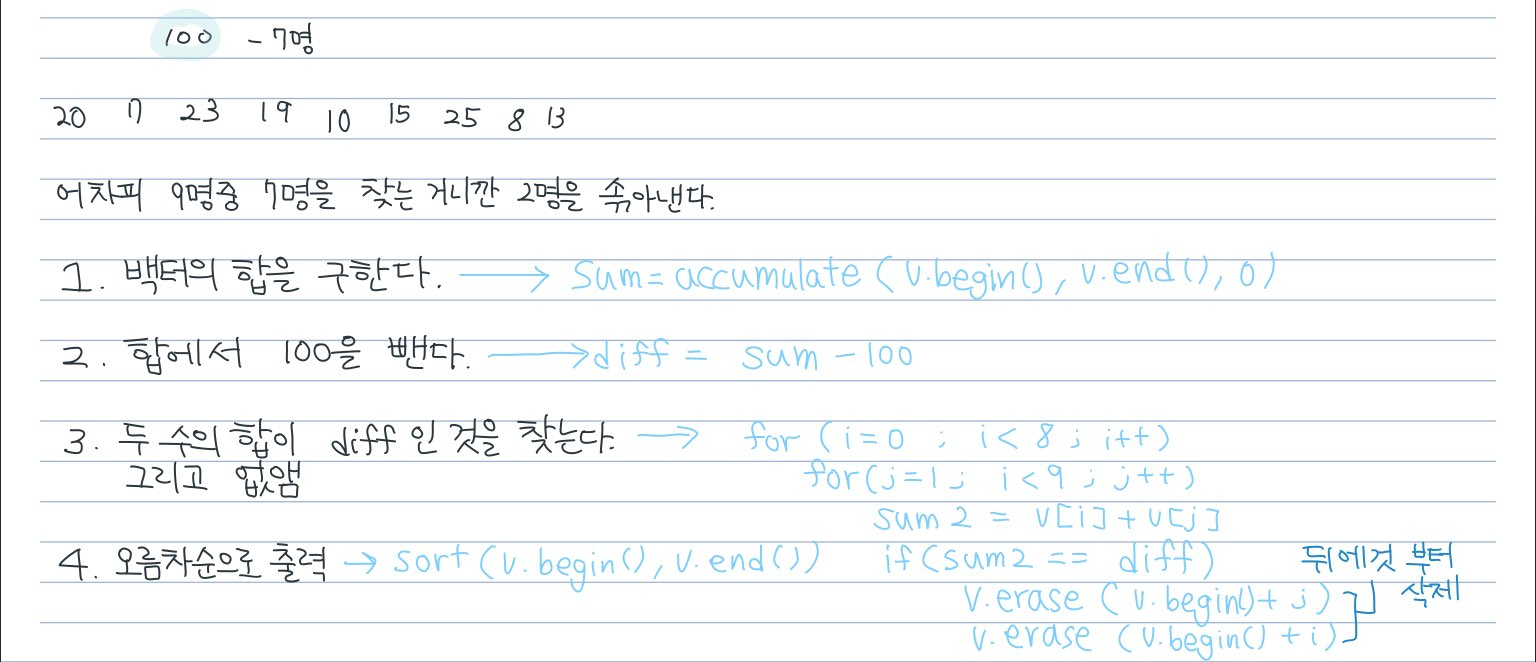 100 - 7명
20 7 23 19 10 15 25 8 13
어차피 9명중 7명을 찾는 거니깐 2명을 솎아낸다.
1. 백터의 합을 구한다. → Sum = accumulate (v.begin(), v.end(), 0)
2. 합에서 100을 뺀다. → diff = sum - 100
3. 두 수의 합이 diff 인 것을 찾는다. → for (i=0 ; i<8 ; i++)
그리고 없앰 for(j=1 ; i<9 ; j++)
sum2 = v[i]+v[j]
4. 오름차순으로 출력 → sort(v.begin(), v.end()) if(sum2 == diff) 뒤에것 부터
v.erase (v.begin()+j) 삭제
v.erase (v.begin()+i)